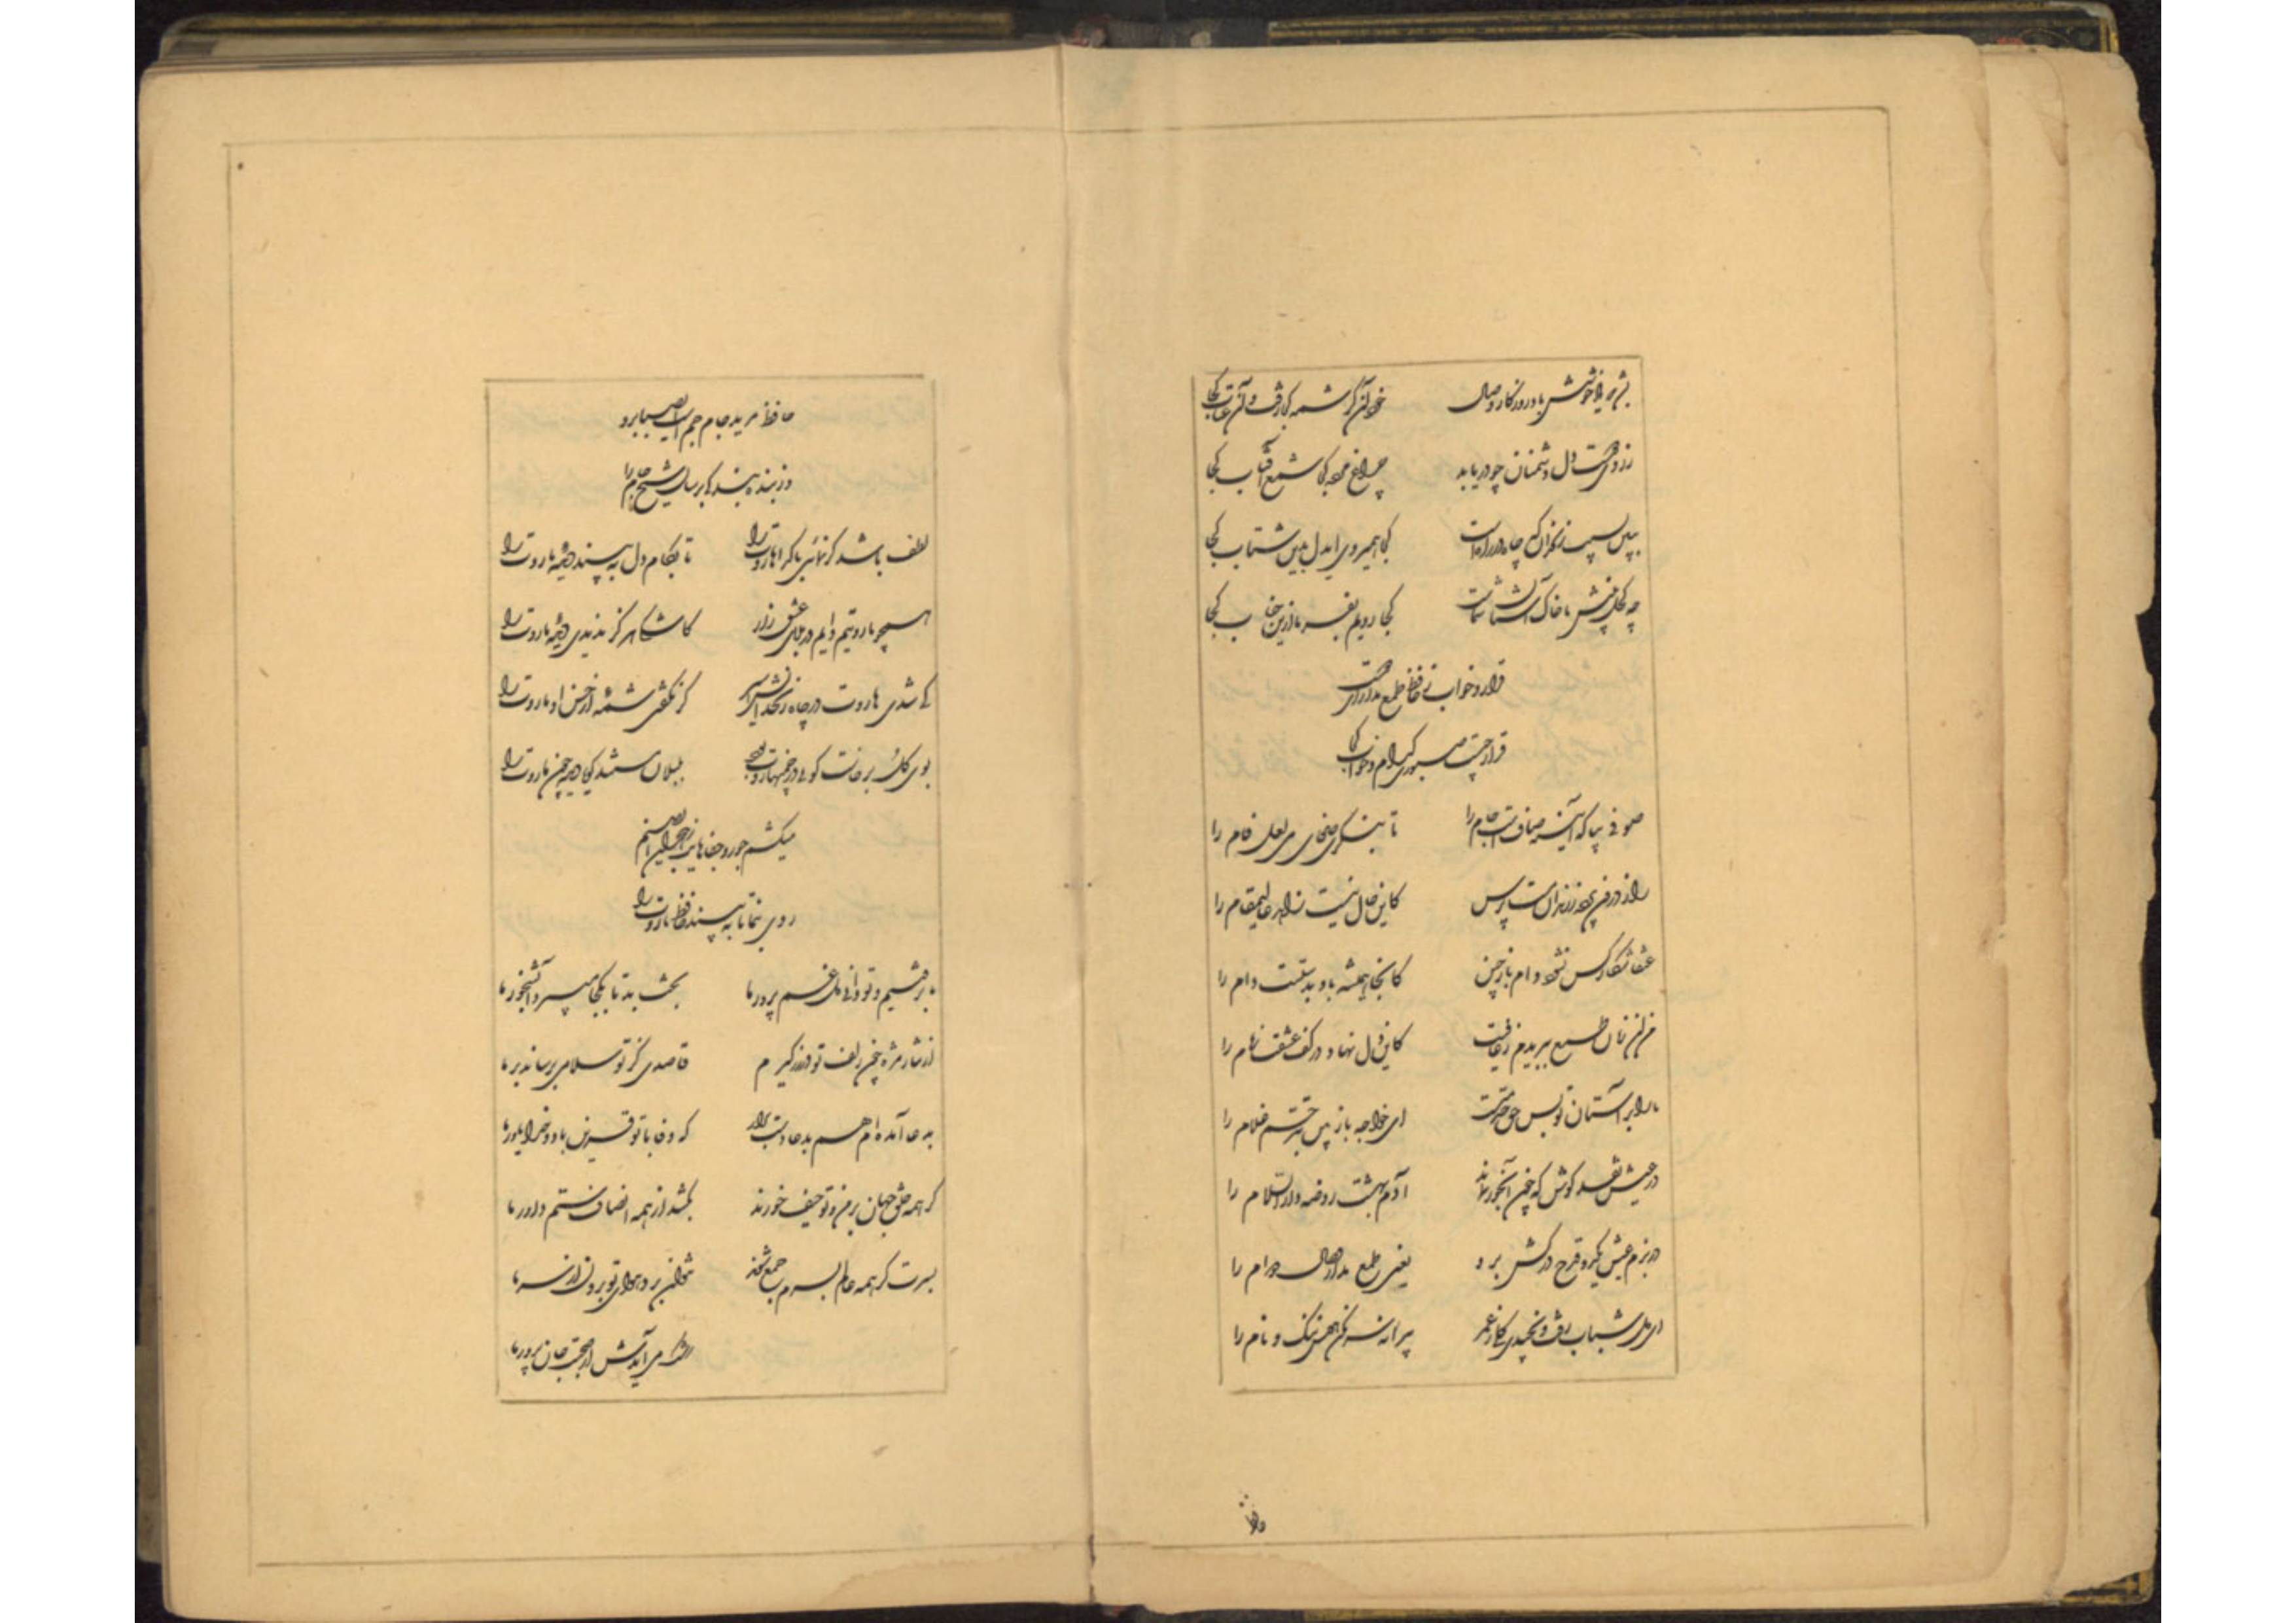 بشد که یاد خوشش باد روزگار وصال خود آن کرشمه کجا رفت و آن عتاب کجا
ز روی دوست دل دشمنان چو دریابد چراغ مرده کجا شمع آفتاب کجا
ببین سیب زنخدان که چاه در راهست کجا همیروی ایدل بدین شتاب کجا
چو کحل بینش ما خاک آستان شماست کجا رویم بفرما ازین جناب کجا
قرار و خواب ز حافظ طمع مدار ای دوست
قرار چیست صبوری کدام و خواب کجا
صوفی بیا که آینه صافیست جام را تا بنگری صفای می لعل فام را
راز درون پرده ز رندان مست پرس کاین حال نیست زاهد عالیمقام را
عنقا شکار کس نشود دام باز چین کانجا همیشه باد بدستست دام را
من آن زمان طمع ببریدم ز عافیت کاین دل نهاد در کف عشقت زمام را
ما را بر آستان تو بس حق خدمتست ای خواجه باز بین به ترحم غلام را
در عیش نقد کوش که چون آبخور نماند آدم بهشت روضه دارالسلام را
در بزم عیش یکدو قدح درکش و برو یعنی طمع مدار وصال دوام را
ای دل شباب رفت و نچیدی گلی ز عمر پیرانه سر مکن هنری ننگ و نام را
حافظ
حافظ مرید جام جم است ای صبا برو
وز بنده بندگی برسان شیخ جام را
لطف باشد گر نپوشی از گداها روت را تا بکام دل به بیند دیده ما روت را
همچو هاروتیم دایم در بلای عشق زار کاشکی هرگز ندیدی دیده ماروت را
کی شدی هاروت در چاه زنخدانش اسیر گر نگفتی شمه از حسن او ماروت را
بوی گل برخاست گوئی در چمنها روت بود بلبلان مستند گویی دیده چون ما روت را
میکشم جور و جفاهایت ز هجران ای صنم
روی بنما تا به بیند حافظ ما روت را
ما برفتیم و تو دانی و دل غم خور ما بخت بد تا بکجا میبرد آبشخور ما
از نثار مژه چون زلف تو در زر گیرم قاصدی کز تو سلامی برساند بر ما
به دعا آمده ام هم بدعا دست برآر که وفا با تو قرین باد و خدا یاور ما
گر همه خلق جهان بر من و تو حیف خورند بکشد از همه انصاف ستم داور ما
بسرت گر همه عالم بسرم جمع شوند نتوان برد هوای تو برون از سر ما